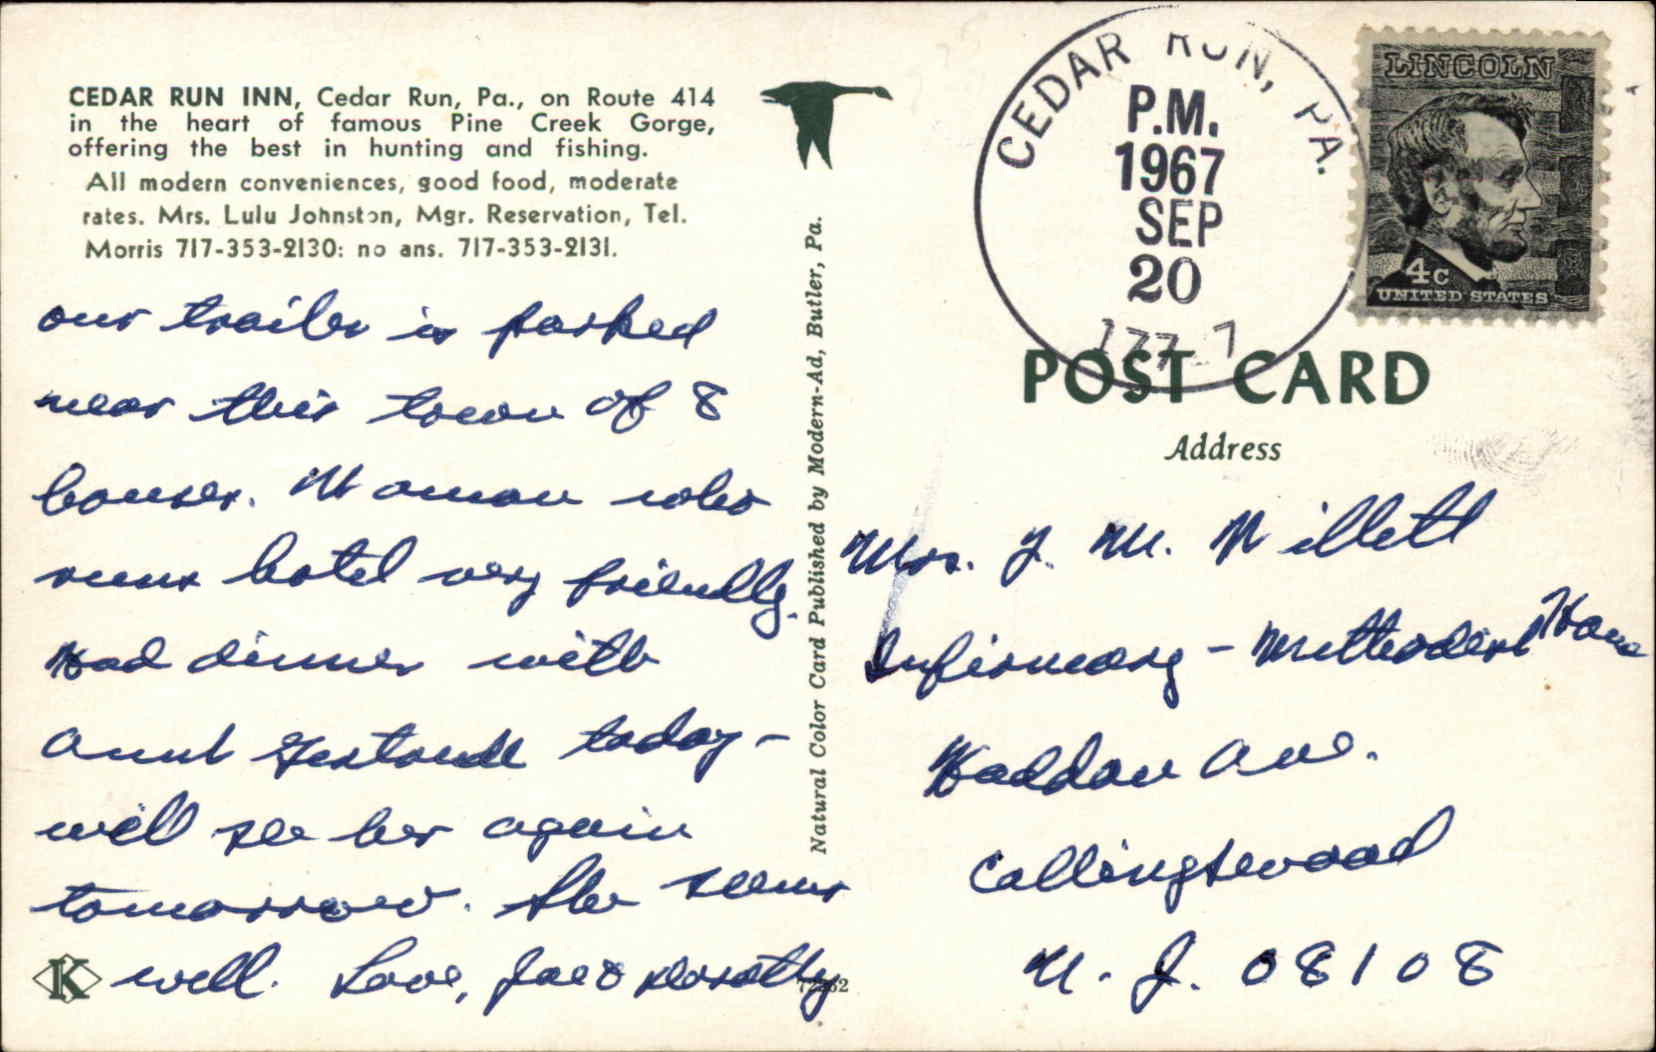 CEDAR RUN INN, Cedar Run, Pa., on Route 414
in the heart of famous Pine Creek Gorge,
offering the best in hunting and fishing.
All modern conveniences, good food, moderate
rates. Mrs. Lulu Johnston, Mgr. Reservation, Tel.
Morris 717-353-2130: no ans. 717-353-2131.
our trailer is parked
near this town of 8
houses. Woman who
runs hotel very friendly.
Had dinner with
Aunt Gertrude today -
will see her again
tomorrow. She seems
well. Love, Joe & Dorothy
K
72262
Natural Color Card Published by Modern-Ad, Butler, Pa.
CEDAR RUN, PA.
P.M.
1967
SEP
20
LINCOLN
4c
UNITED STATES
POST CARD
Address
Mrs. J. M. Willett
Infirmary - Methodist Home
Haddon Ave.
Collingswood
N. J. 08108